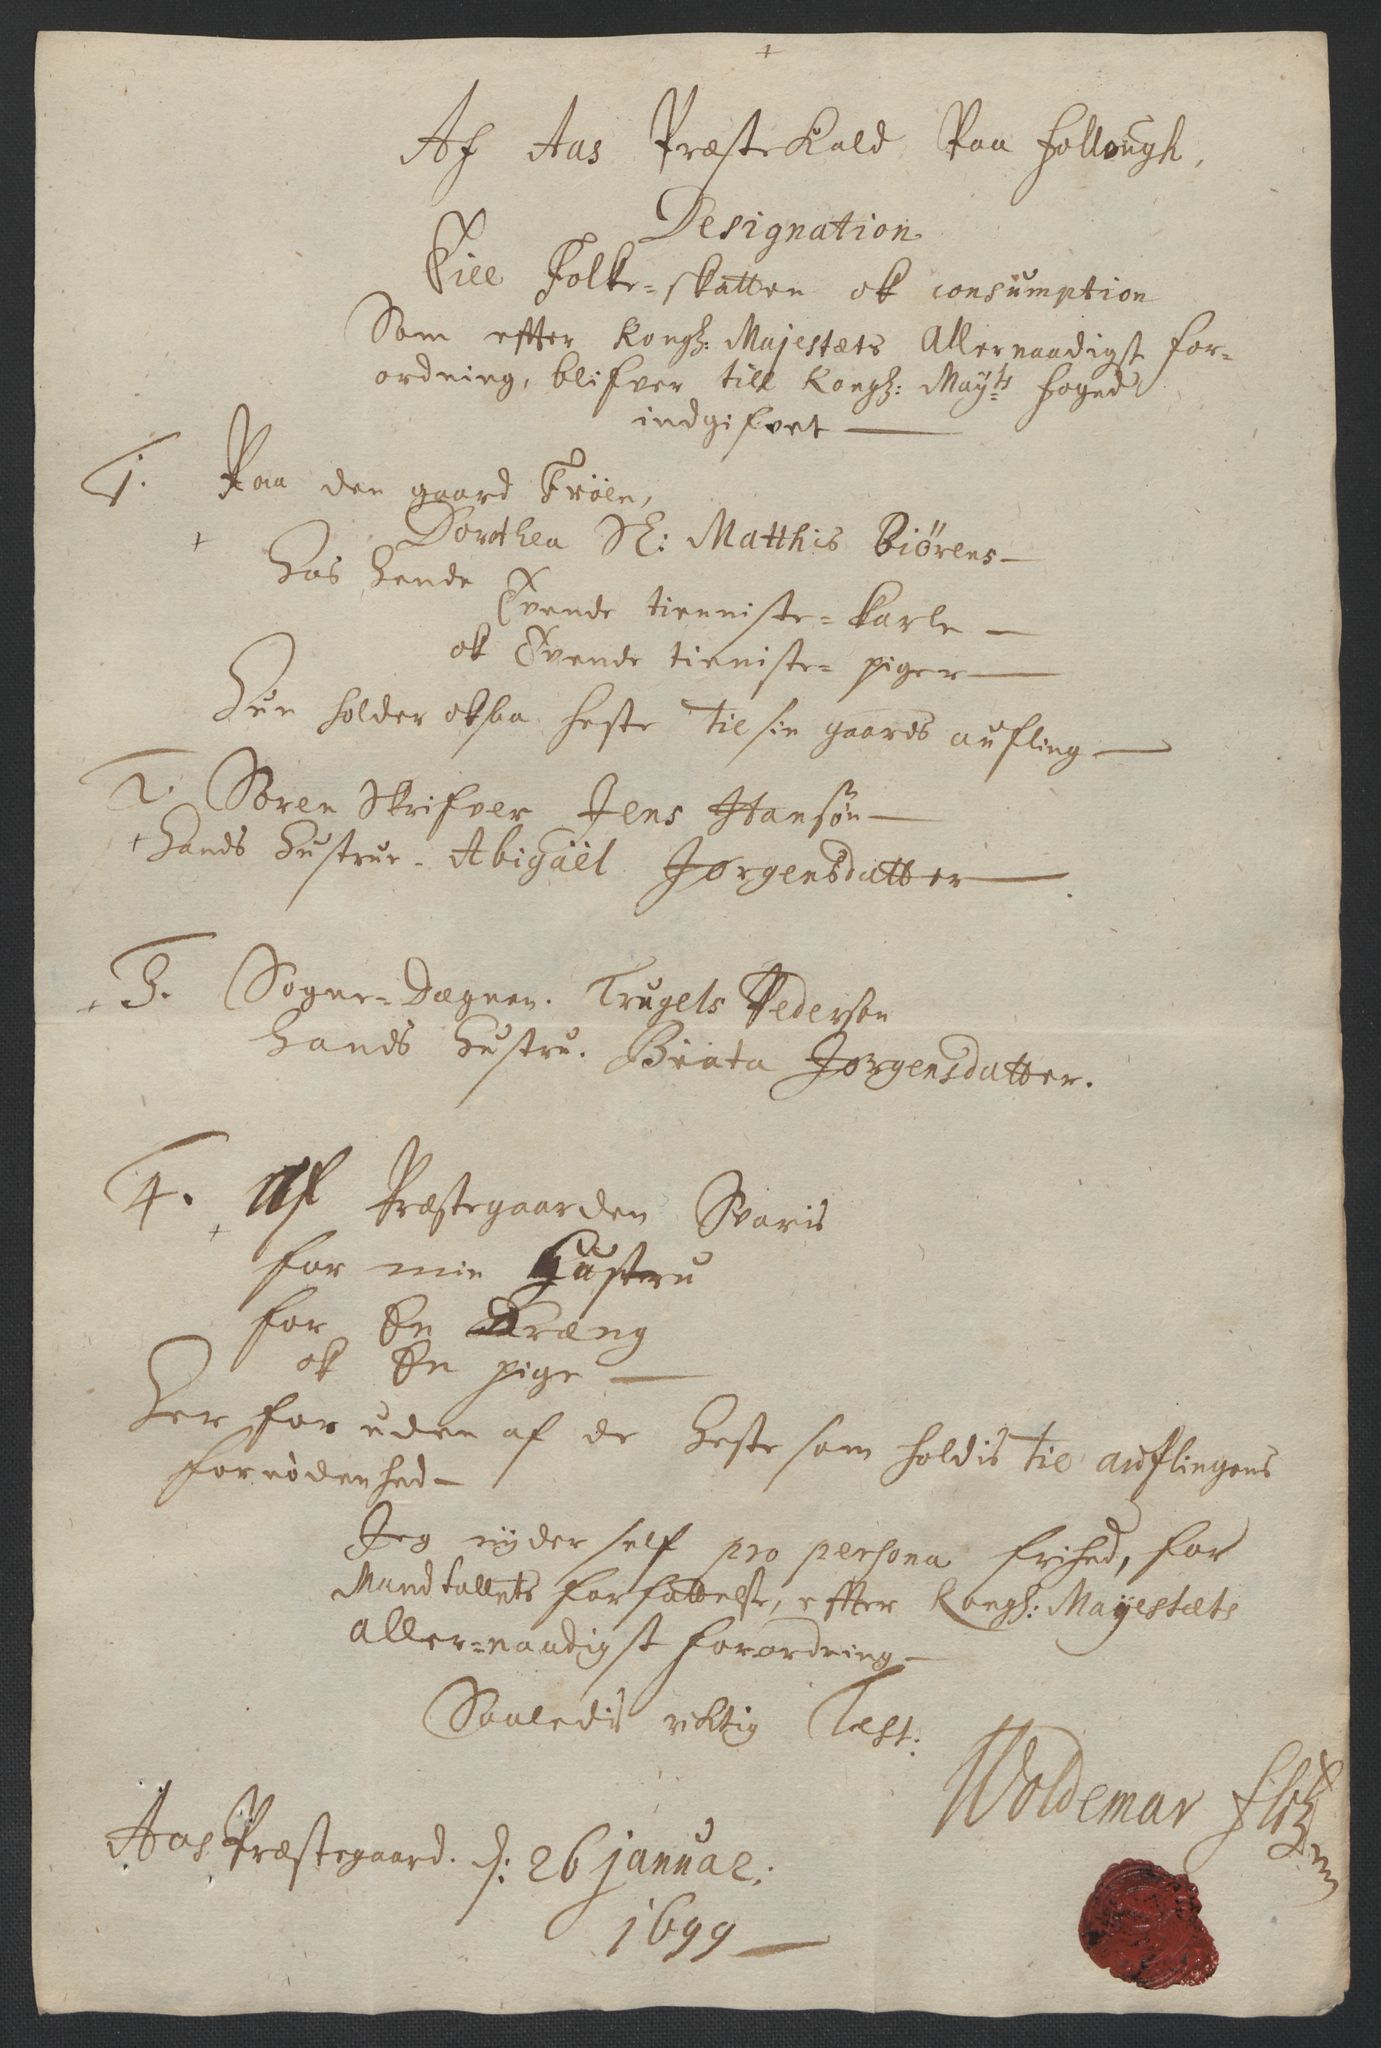 Af Aas Præste Kald Paa follough,
Designation
Till Folke-skatten ok consumption
Som efter Kongl: Majestæts Allernaadigst for-
ordning, blifver till Kongl: Mayts foged
indgifvet
1. Paa den gaard Frøen,
Dorothea Sl: Matthis Biörens
hos hende
Tvende tienniste-karle
ok Tvende tieniste-piger
Hun holder oksaa heste til sin gaards aufling
2. Soren Skrifver Jens Hansøn
hands hustrue. Abigäel Jorgensdatter
3. Sogne-Dægnen. Trugels Pedersøn
hands hustru. Beata Jorgensdatter.
4. Af Præstegaarden Svaris
for min Hustru
for En Dræng
ok En pige
Her foruden af de heste som holdis til auflingens
fornødenhed
Jeg nyder self pro persona frihed, for
Mandtallets forfattelse, efter Kongl: Mayestæts
Aller-naadigst forordning
Saaledis riktig Test:
Woldemar
Aas Præstegaard. d: 26 januar:
1699